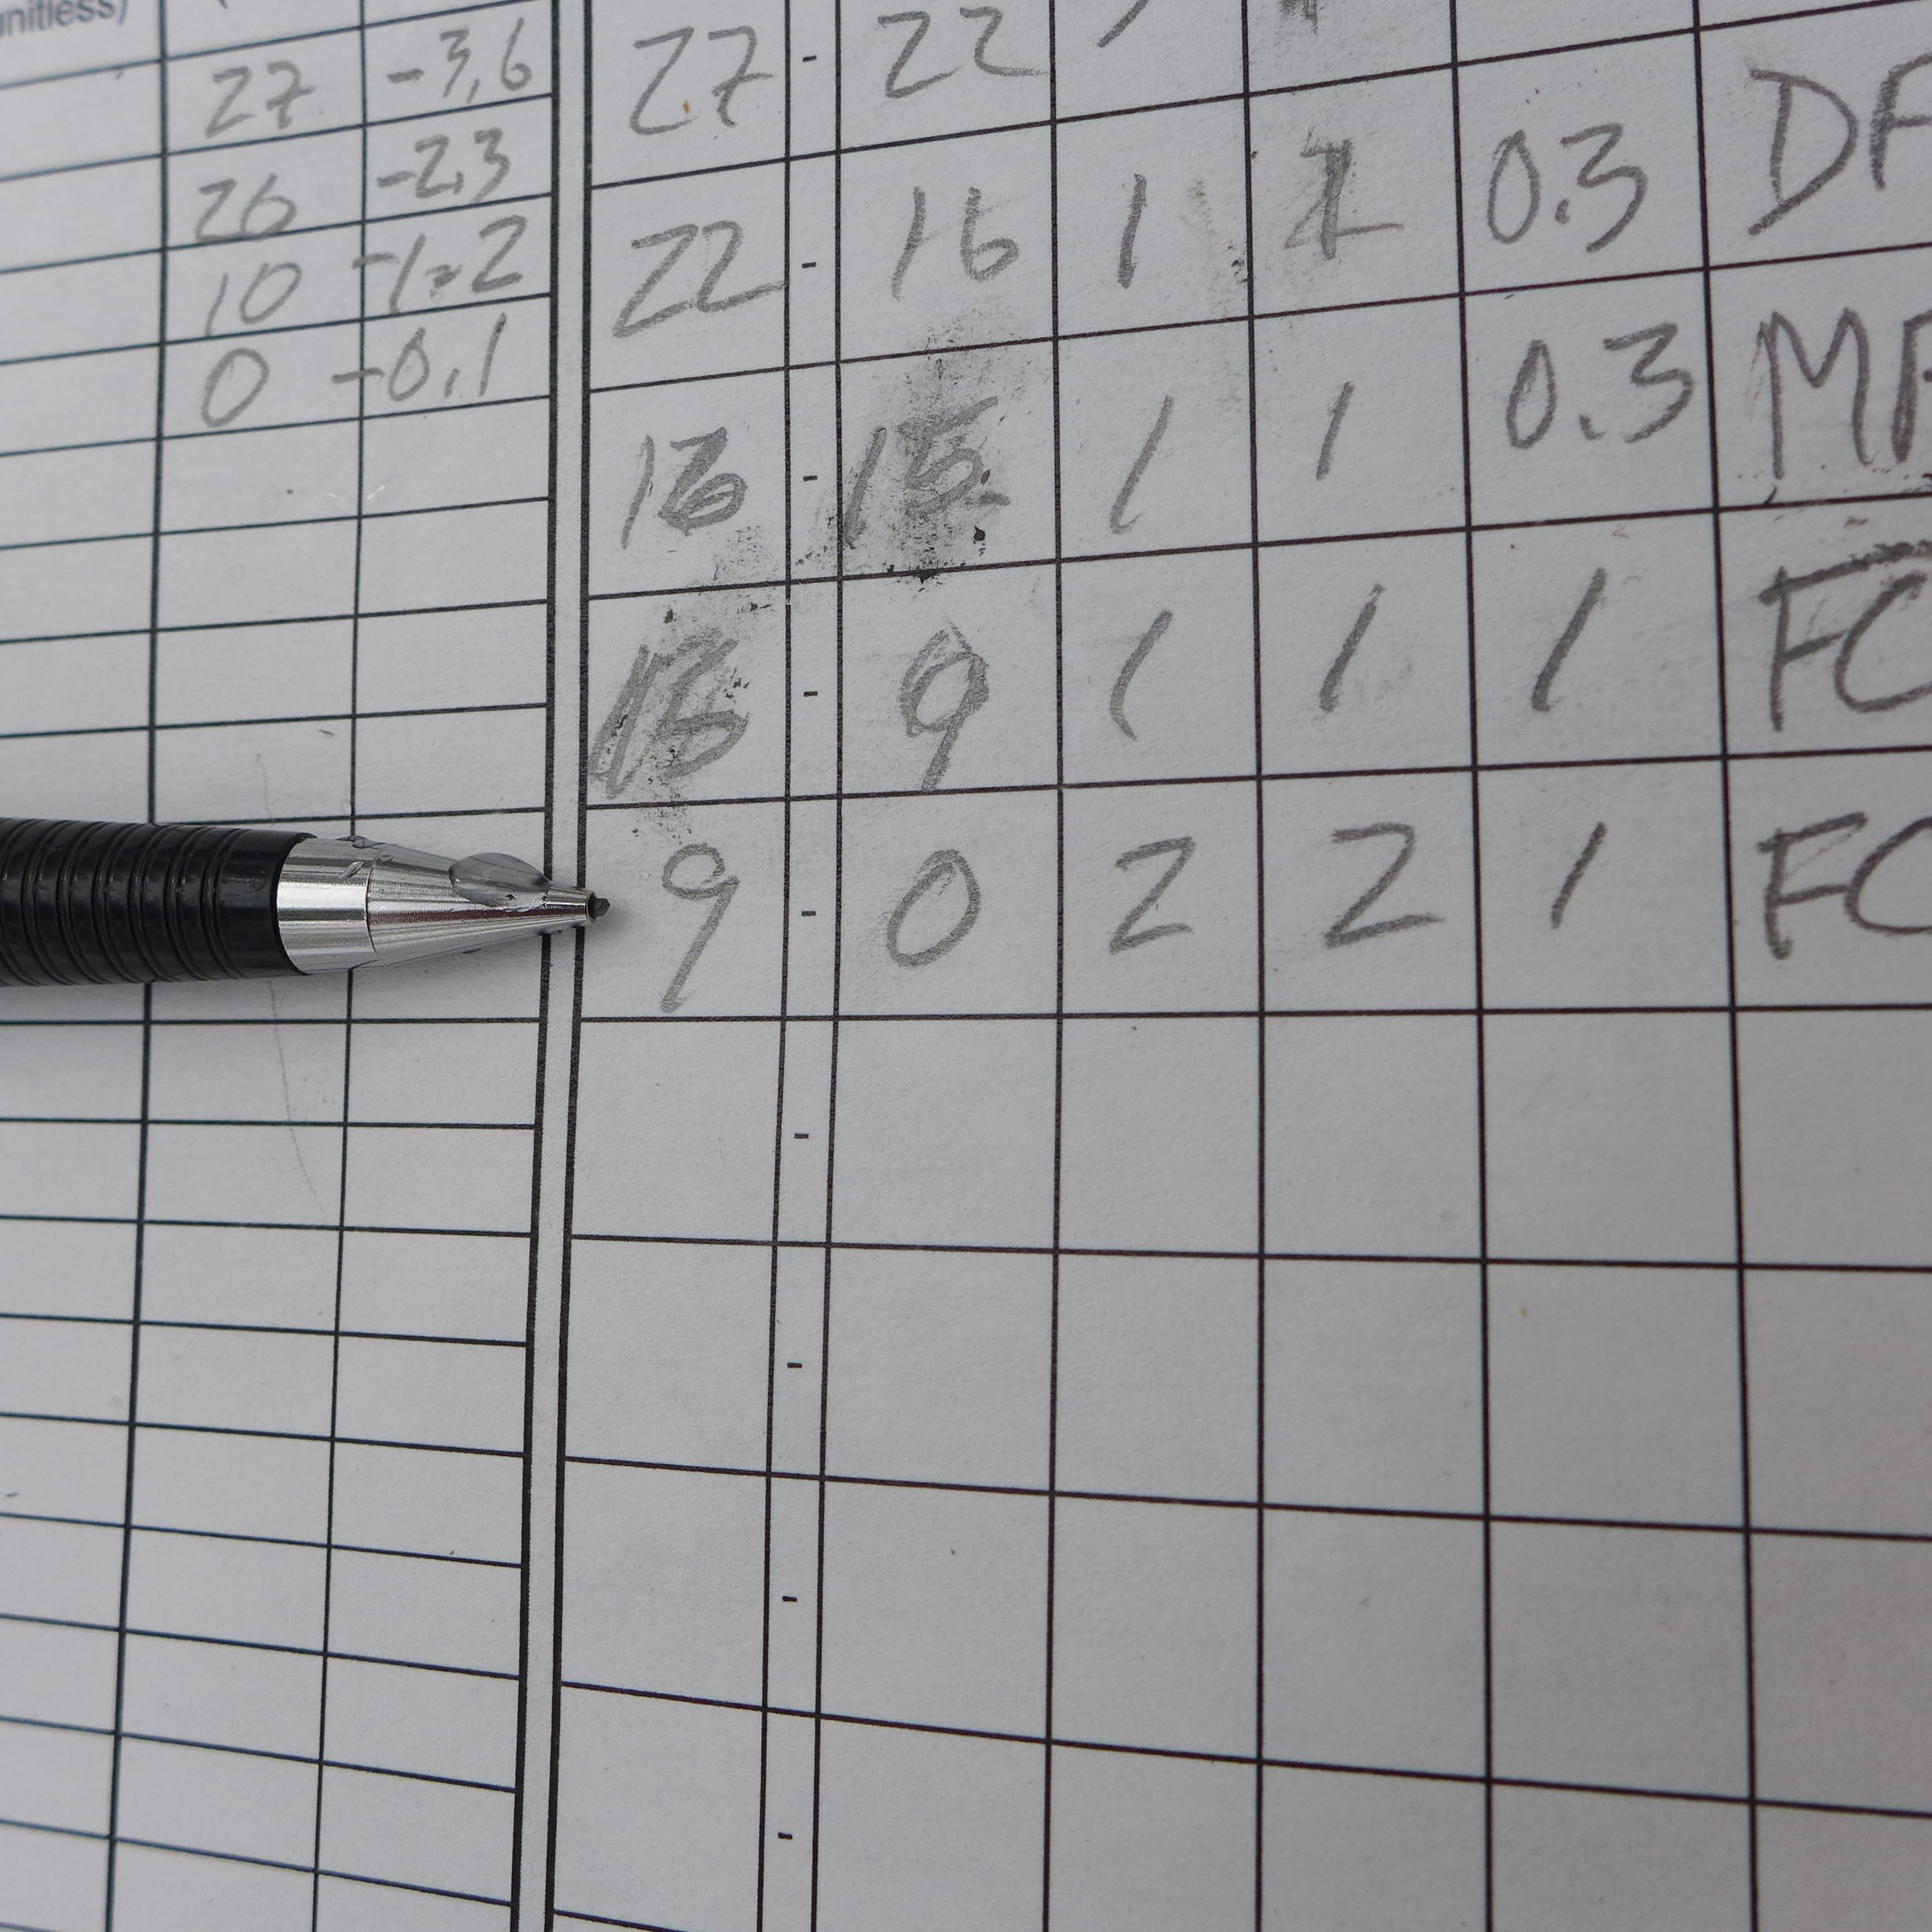 unitless)
27 -3,6
26 -2.3
10 -1.2
0 -0.1
27 - 22
22 - 16 1 1 0.3 DF
16 - 15 1 1 0.3 MF
15 - 9 1 1 1 FC
9 - 0 2 2 1 FC
-
-
-
-